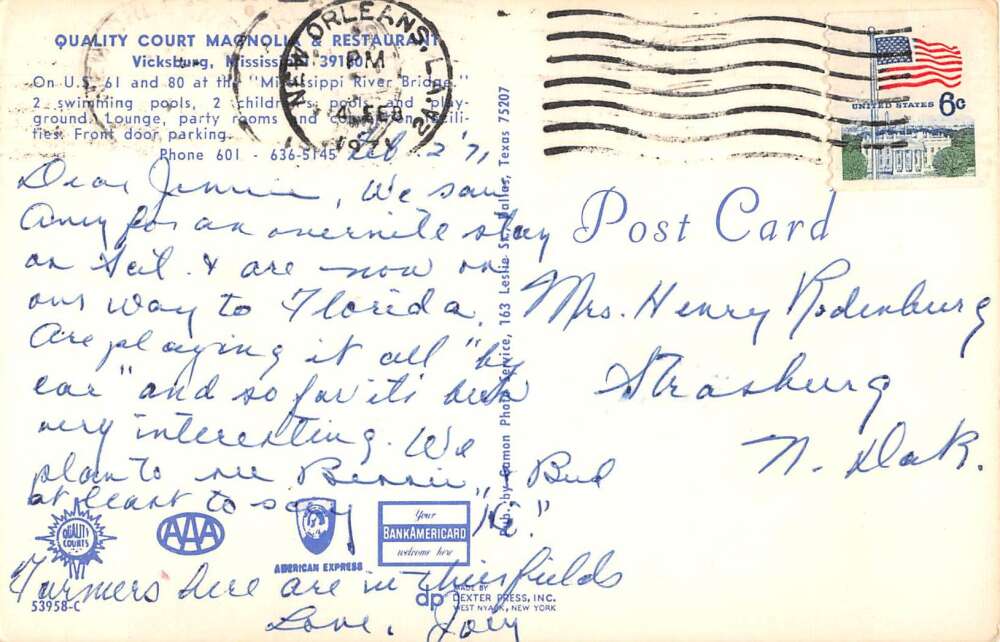 QUALITY COURT MAGNOLIA & RESTAURANT
Vicksburg, Mississippi 39180
On U.S. 61 and 80 at the "Mississippi River Bridge"
2 swimming pools, 2 children's pools and play-
ground. Lounge, party rooms and convention facili-
ties. Front door parking.
Phone 601 - 636-5145
NEW ORLEANS, LA
PM
4 FEB
1971
UNITED STATES 6c
Feb. 2 '71
Dear Jennie, We saw
Amy for an overnite stay
on Sat. & are now on
our way to Florida.
Are playing it all "by
ear" and so far it's been
very interesting. We
plan to see Bernie, & Bud
at least to say "Hi."
Farmers here are in their fields
Love, Joey
Post Card
Mrs. Henry Rodenburg
Strasburg
N. Dak.
Pub. by Gamon Photo Service, 163 Leslie St., Dallas, Texas 75207
QUALITY COURTS
AAA
AMERICAN EXPRESS
Your
BANKAMERICARD
welcome here
53958-C
dp
MADE BY
DEXTER PRESS, INC.
WEST NYACK, NEW YORK